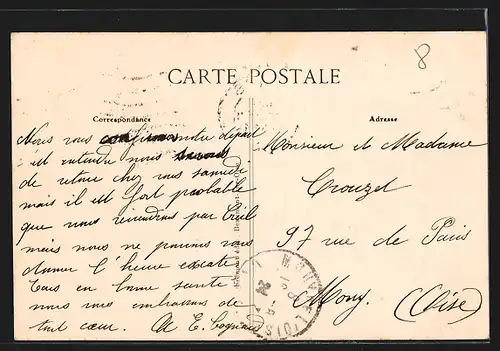 8
CARTE POSTALE
Correspondance
Adresse
Nous vous confirmons notre départ
est entendu nous serons
de retour chez vous samedi
mais il est fort probable
que nous reviendrons par Creil
mais nous ne pouvons vous
donner l'heure exacte
Tous en bonne santé
nous vous embrassons de
tout cœur.
Monsieur et Madame
Crouzet
97 rue de Paris
Mouy. (Oise)